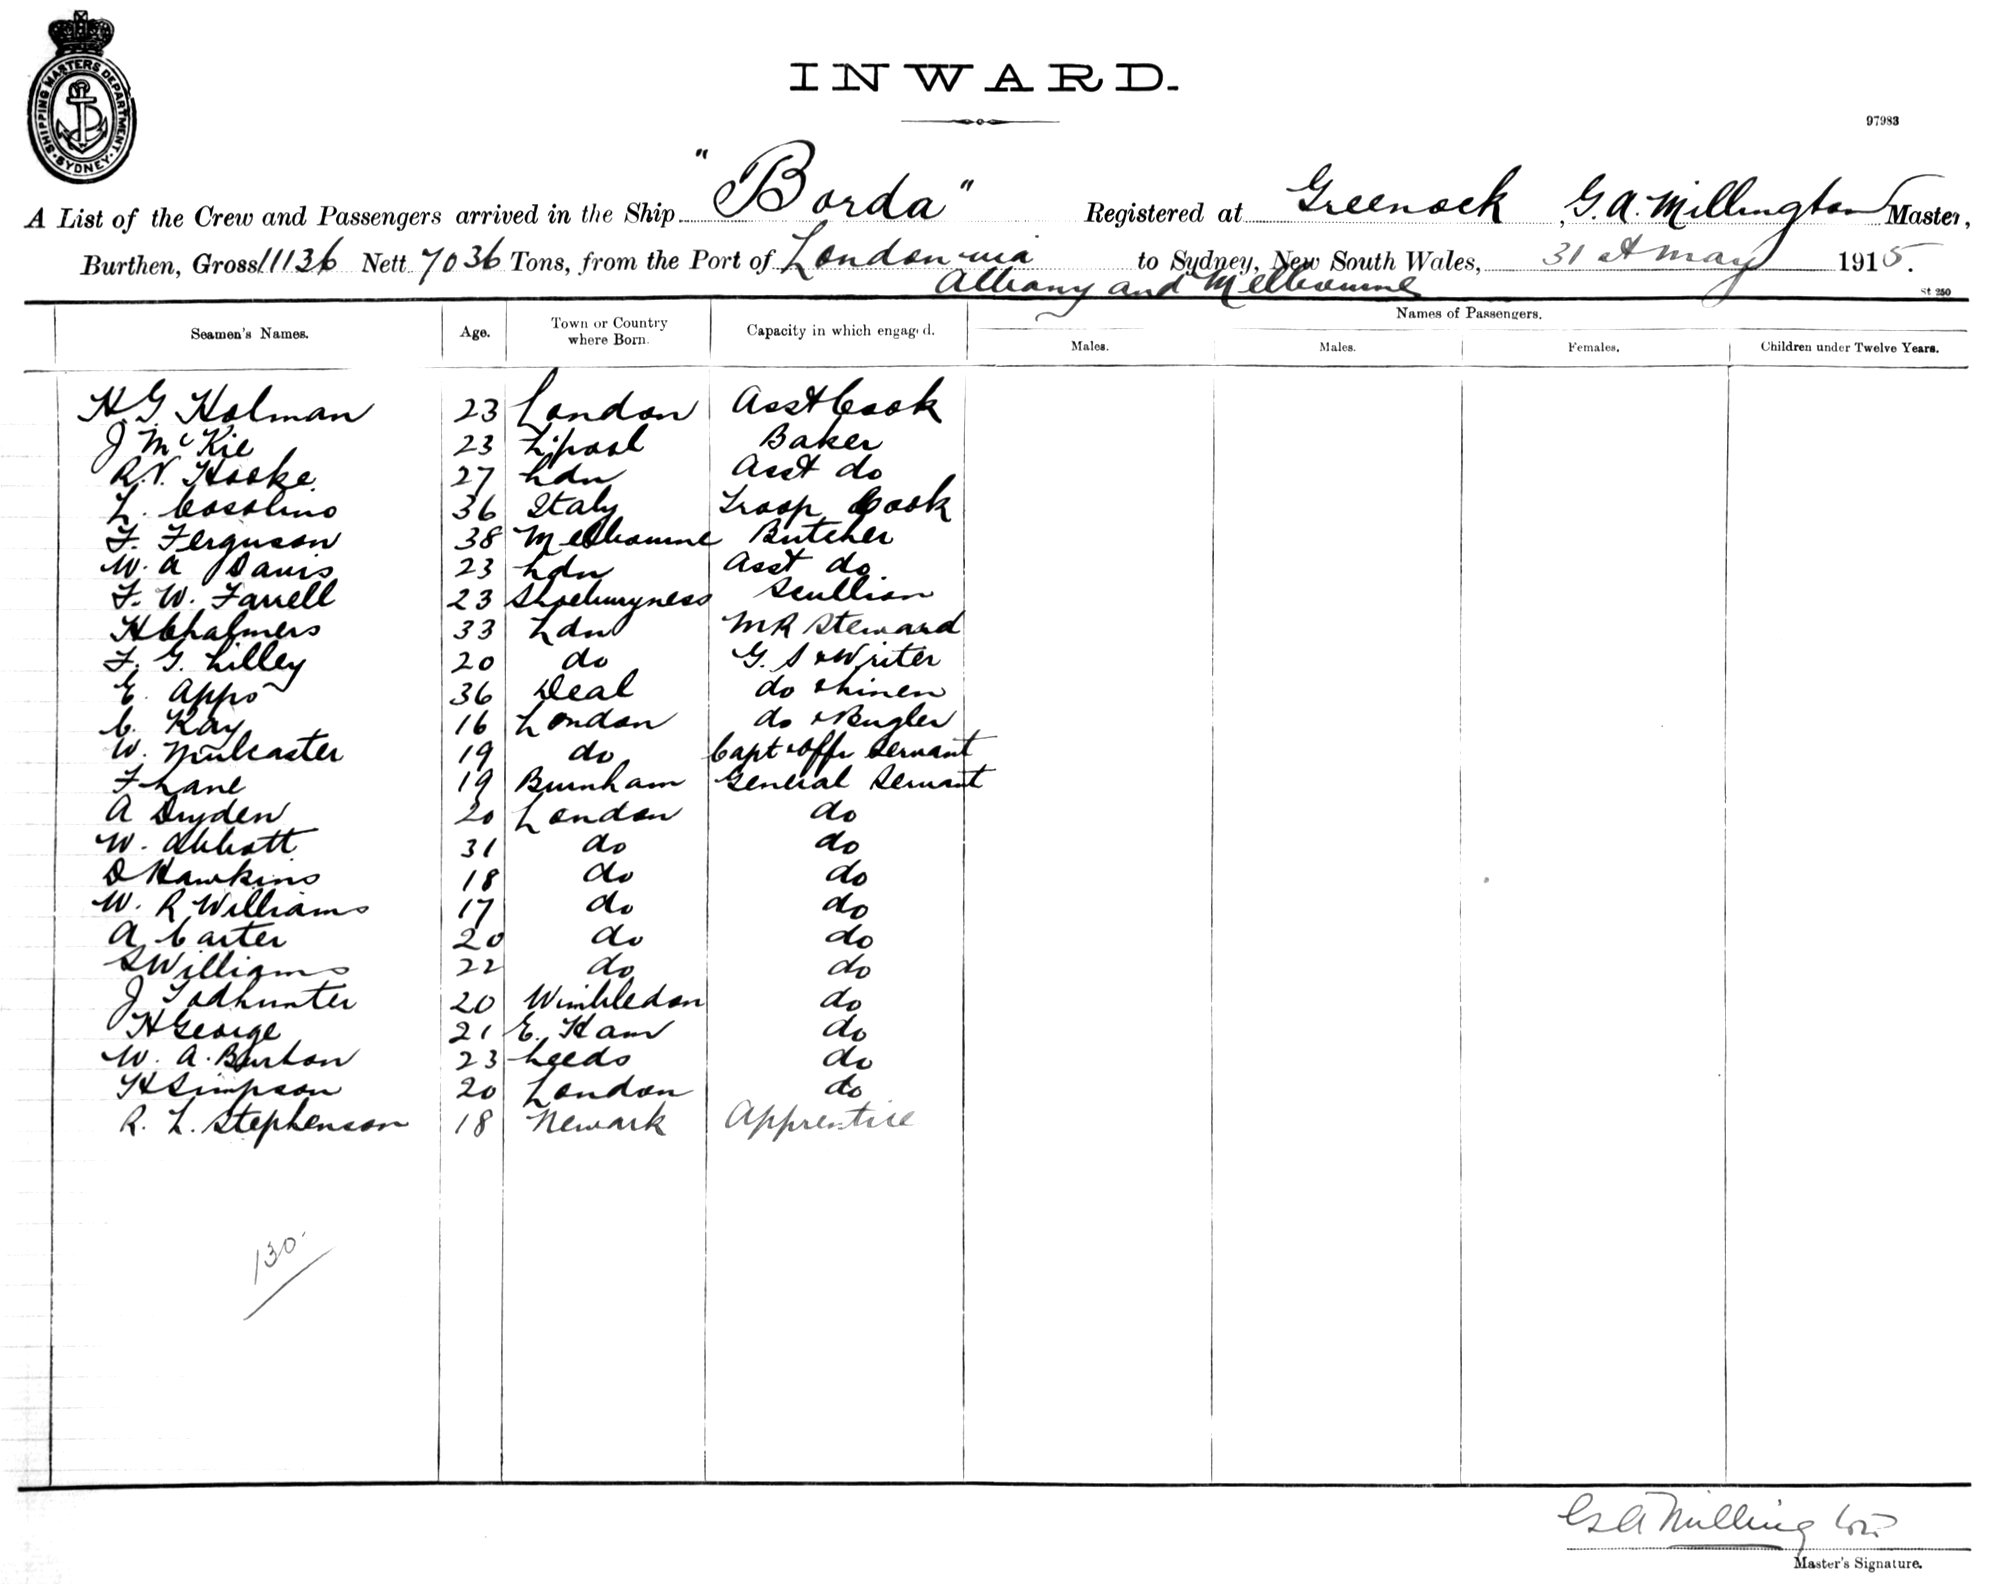 SHIPPING MASTERS DEPARTMENT. SYDNEY.
INWARD.
97983
A List of the Crew and Passengers arrived in the Ship "Borda" Registered at Greenock, G. A. Millington Master,
Burthen, Gross 11136 Nett 7036 Tons, from the Port of London via to Sydney, New South Wales, 31st May 1915.
Albany and Melbourne
St 250
Names of Passengers.
Seamen's Names. Age. Town or Country where Born. Capacity in which engaged. Males. Males. Females. Children under Twelve Years.
H. G. Holman 23 London Asst Cook
J McKie 23 L'pool Baker
R. V. Hooke 27 Ldn Asst do
L. Cosolino 36 Italy Troop Cook
F. Ferguson 38 Melbourne Butcher
W. A Davis 23 Ldn Asst do
F. W. Farrell 23 Shoeburyness Scullion
H Chalmers 33 Ldn MR Steward
F. G. Lilley 20 do G. S & Writer
E. Apps 36 Deal do & Linen
C. Kay 16 London do & Bugler
W. Mulcaster 19 do Capt & Offr Servant
F Lane 19 Burnham General Servant
A Dryden 20 London do
W. Abbott 31 do do
D Hawkins 18 do do
W. R Williams 17 do do
A. Carter 20 do do
S Williams 22 do do
J Todhunter 20 Wimbledon do
H George 21 E. Ham do
W. A. Burton 23 Leeds do
H Simpson 20 London do
R. L. Stephenson 18 Newark Apprentice
130.
G A Millington
Master's Signature.